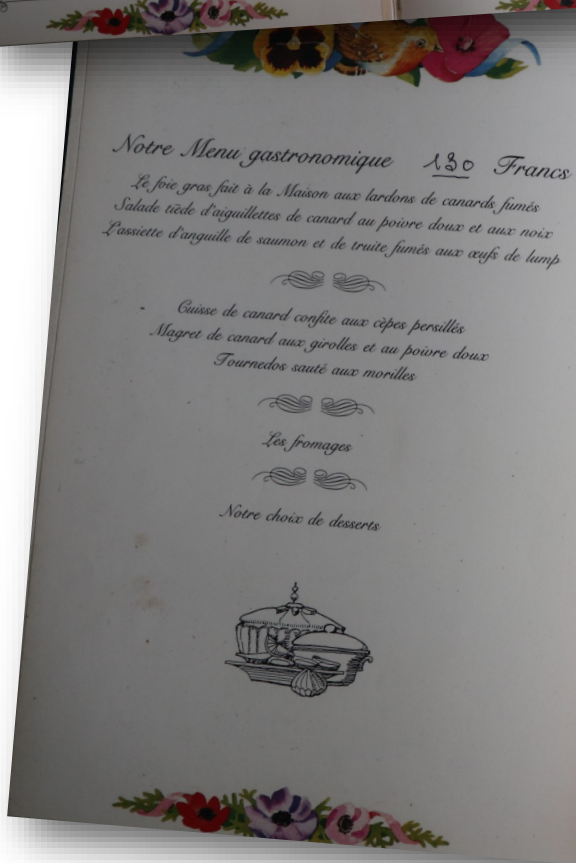 Notre Menu gastronomique 130 Francs
Le foie gras fait à la Maison aux lardons de canards fumés
Salade tiède d'aiguillettes de canard au poivre doux et aux noix
L'assiette d'anguille de saumon et de truite fumés aux œufs de lump
Cuisse de canard confite aux cèpes persillés
Magret de canard aux girolles et au poivre doux
Tournedos sauté aux morilles
Les fromages
Notre choix de desserts